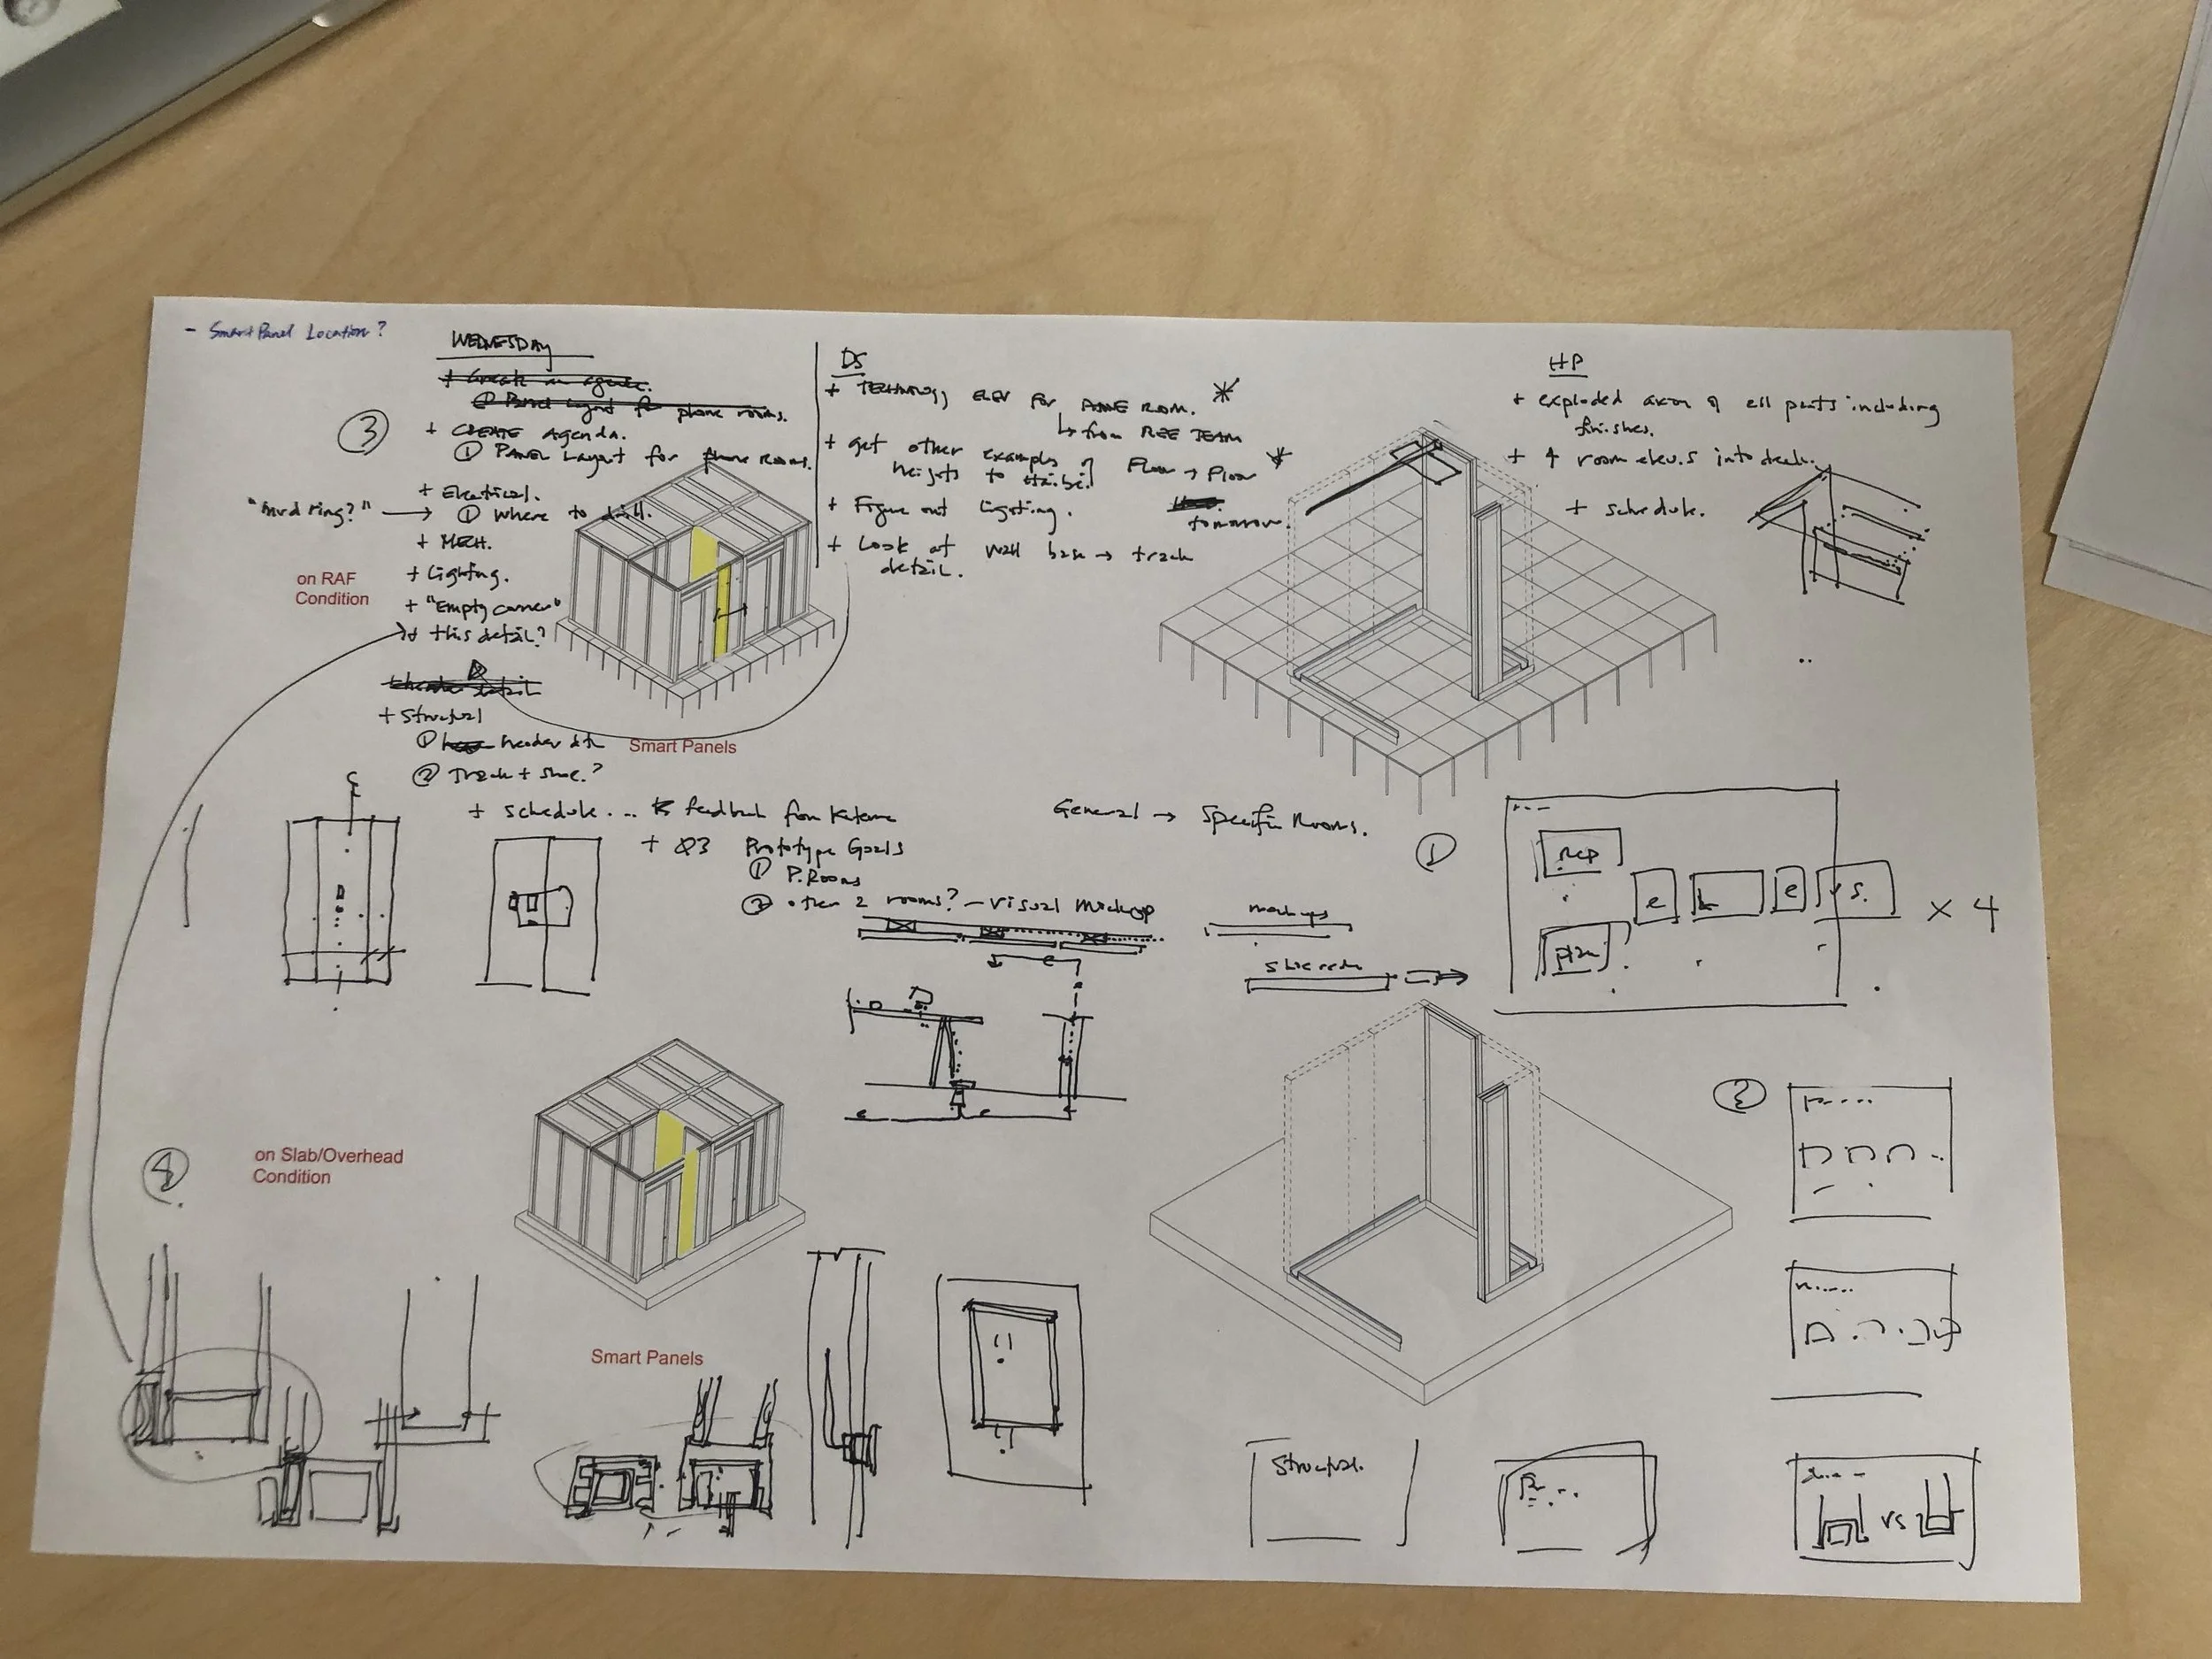 - Smart Panel Location?
WEDNESDAY
+ Create an agenda.
① Panel Layout for phone rooms.
③
+ CREATE Agenda.
① PANEL Layout for phone rooms.
+ Electrical.
"mud ring?" → ① Where to drill.
+ MECH.
+ Lighting.
+ "Empty corner"
+ this detail?
on RAF
Condition
+ header detail
+ Structural
① header
② Track + shoe?
Smart Panels
+ schedule ... feedback from
+ Q3 Prototype Goals
① P. Rooms
② other 2 rooms? - visual mockup
DS
+ TECHNOLOGY ELEV for PHONE ROOM. *
↳ from TEAM
+ get other examples of Floor → Floor *
heights to
+ Figure out lighting.
tomorrow.
+ Look at wall base → track
detail.
HP
+ exploded axon of all parts including
finishes.
+ 4 room elevs into deck.
+ schedule.
General → Specific Rooms.
mockups
schedule
①
rcp
e
e
vs.
plan
x 4
②
④
on Slab/Overhead
Condition
Smart Panels
Structural.
vs